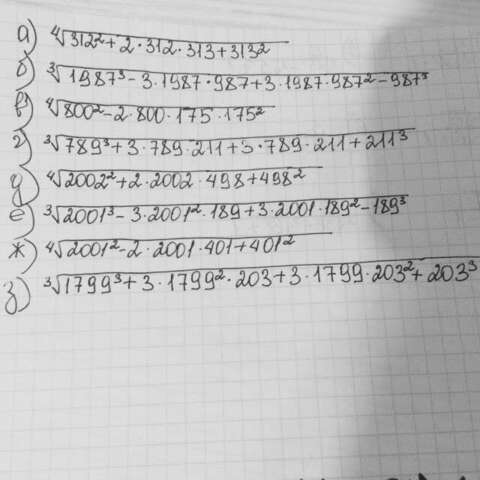 а) ⁴√312²+2·312·313+313²
б) ³√1987³-3·1987·987+3·1987·987²-987³
в) ⁴√800²-2·800·175·175²
г) ³√789³+3·789·211+3·789·211+211³
д) ⁴√2002²+2·2002·498+498²
е) ³√2001³-3·2001²·189+3·2001·189²-189³
ж) ⁴√2001²-2·2001·401+401²
з) ³√1799³+3·1799²·203+3·1799·203²+203³